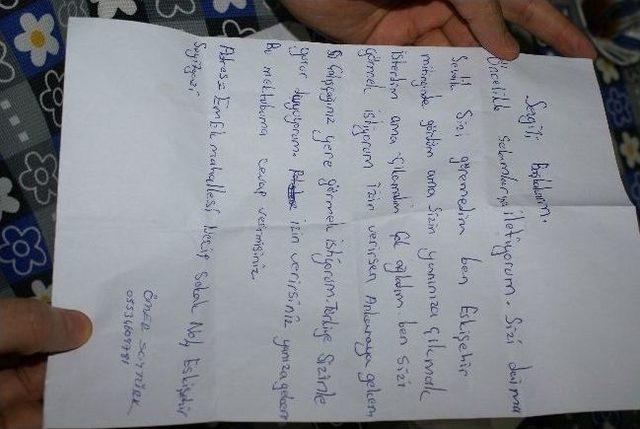 Sevgili Başkanım.
Öncelikle selamlarımı iletiyorum. Sizi daima
Sevdik Sizi göremedim ben Eskişehir
mitinginde gördüm ama Sizin yanınıza Çıkmak
isterdim ama çıkamadım Çok ağladım ben sizi
görmek istiyorum izin verirsen Ankaraya gelsem
Sizi Çalıştığınız yere görmek istiyorum. Türkiye Sizinle
gurur duyuyorum. izin verirsiniz yanınıza gelsem
Bu mektubuma cevap verirmisiniz
Adres: Emek mahallesi Necip Sokak No: Eskişehir
Saygılar
ÖMER SOYTÜRK